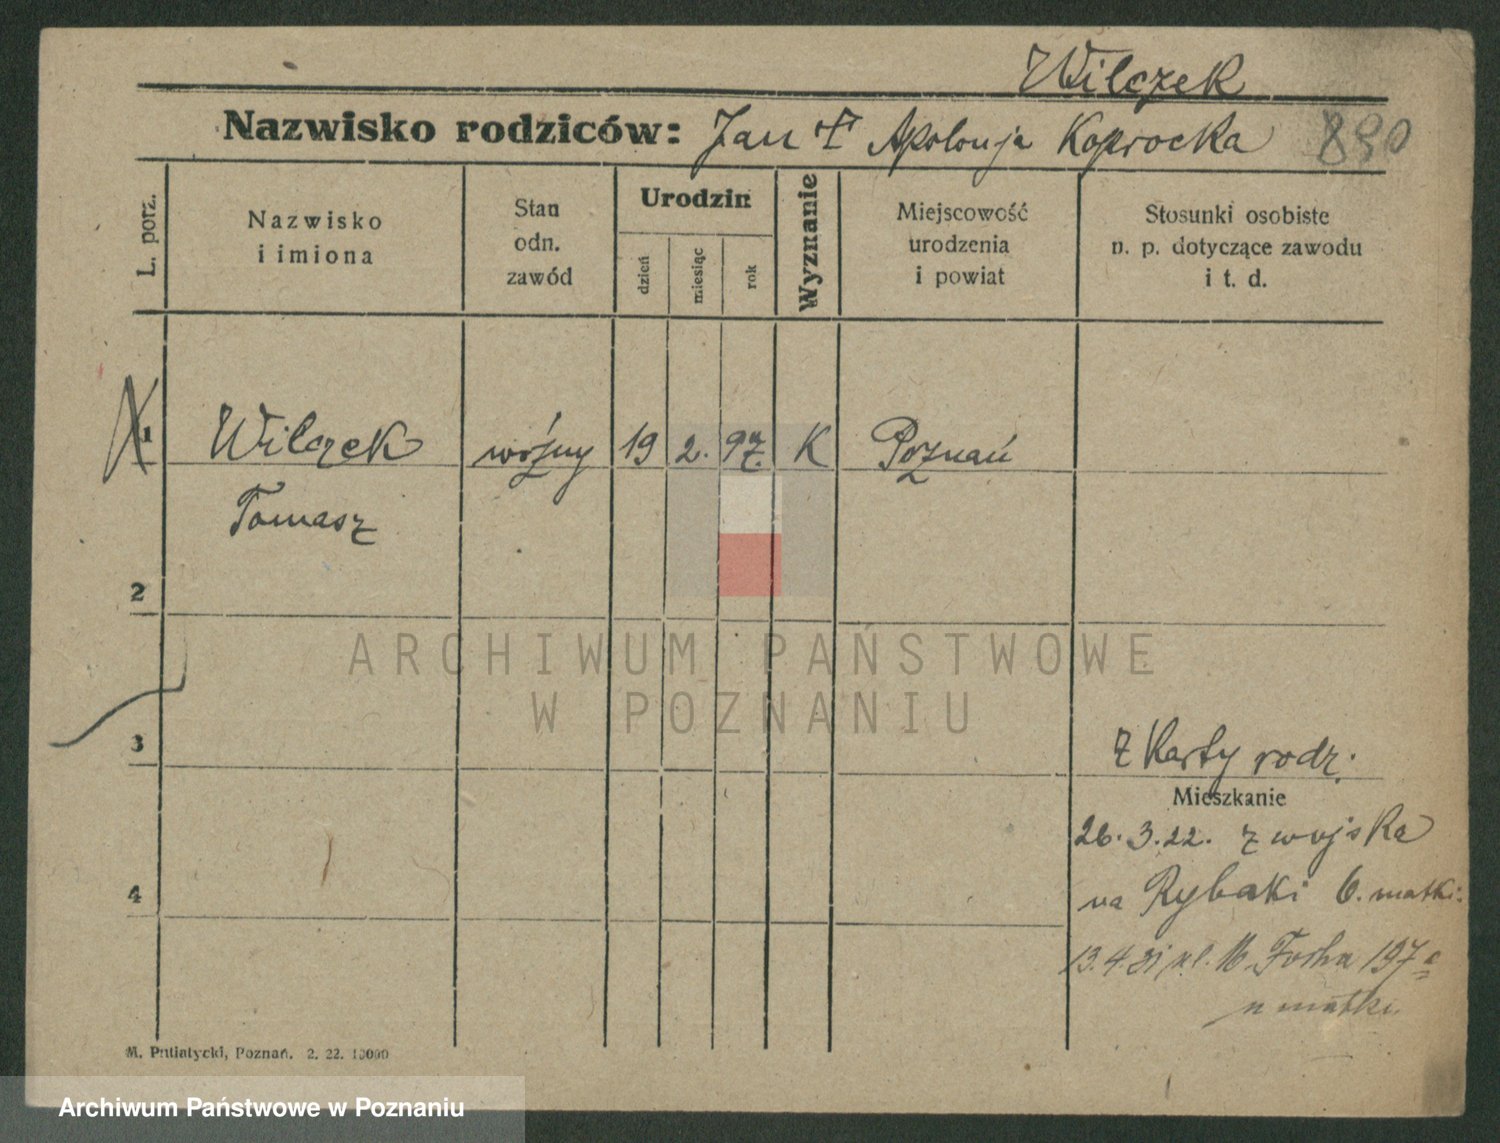 Wilczek
Nazwisko rodziców: Jan + Apolonja Koprocka 890
L. porz.
Nazwisko
i imiona
Stan
odn.
zawód
Urodzin
dzień
miesiąc
rok
Wyznanie
Miejscowość
urodzenia
i powiat
Stosunki osobiste
n. p. dotyczące zawodu
i t. d.
1 Wilczek woźny 19 2. 97. K Poznań
Tomasz
2
3
z Karty rodz.
Mieszkanie
26.3.22. z wojska
na Rybaki 6. matki:
4
13.4.31 ul. M. Focha 197
u matki
M. Putiatycki, Poznań. 2. 22. 10000
ARCHIWUM PAŃSTWOWE
W POZNANIU
Archiwum Państwowe w Poznaniu